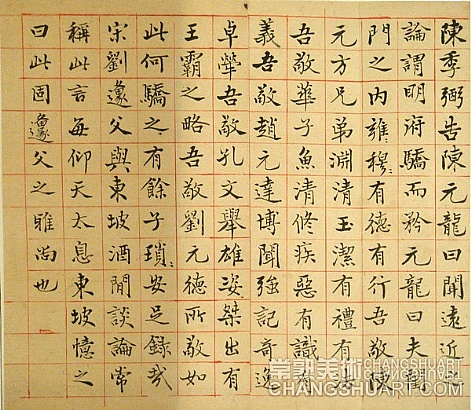 陳季弼告陳元龍曰聞遠近之
論謂明府驕而矜元龍曰夫閨
門之內雍穆有德有行吾敬陳
元方兄弟淵清玉潔有禮有法
吾敬華子魚清修疾惡有識有
義吾敬趙元達博聞強記奇逸
卓犖吾敬孔文舉雄姿桀出有
王霸之略吾敬劉元德所敬如
此何驕之有餘子瑣〻安足錄哉
宋劉邍父與東坡酒閒談論常
稱此言每仰天太息東坡憶之
曰此固邍父之雅尚也
常熟美術 CHANGSHUART
CHANGSHUART.COM